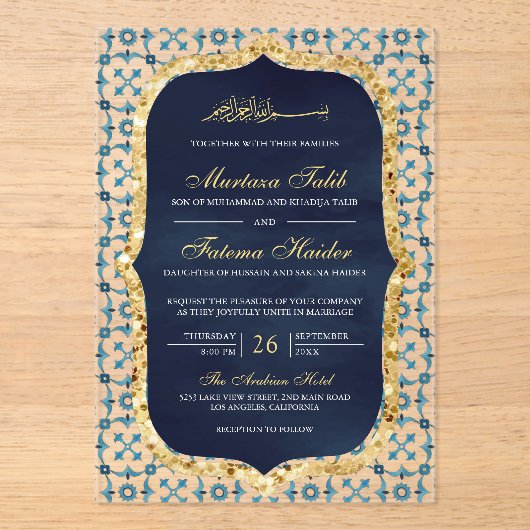 بسم الله الرحمن الرحيم
TOGETHER WITH THEIR FAMILIES
Murtaza Talib
SON OF MUHAMMAD AND KHADIJA TALIB
AND
Fatema Haider
DAUGHTER OF HUSSAIN AND SAKINA HAIDER
REQUEST THE PLEASURE OF YOUR COMPANY
AS THEY JOYFULLY UNITE IN MARRIAGE
THURSDAY 26 SEPTEMBER
8:00 PM 20XX
The Arabian Hotel
5253 LAKE VIEW STREET, 2ND MAIN ROAD
LOS ANGELES, CALIFORNIA
RECEPTION TO FOLLOW